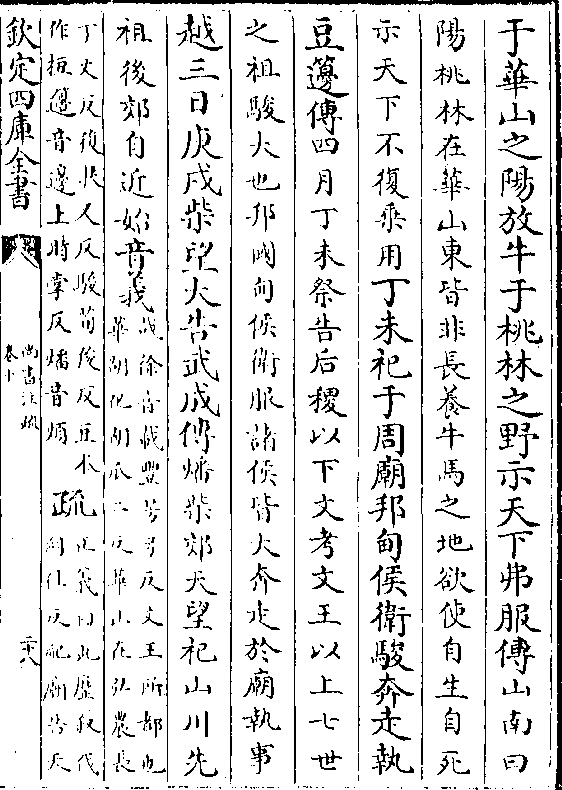 于華山之陽放牛于桃林之野示天下弗服傳山南曰
陽桃林在華山東皆非長養牛馬之地欲使自生自死
示天下不復乘用丁未祀于周廟邦甸侯衛駿奔走執
豆籩傳四月丁未祭告后稷以下文考文王以上七世
之祖駿大也邦國甸侯衛服諸侯皆大奔走於廟執事
越三日庚戌柴望大告武成傳燔柴郊天望祀山川先
祖後郊自近始音義
哉徐音載豐芳弓反文王所都也
華胡化胡瓜二反華山在弘農長
丁丈反復扶又反駿荀俊反豆本
作梪籩音邊上時掌反燔音煩
疏
正義曰此歷敘伐
紂往反祀廟告天
欽定四庫全書
尚書注疏
卷十